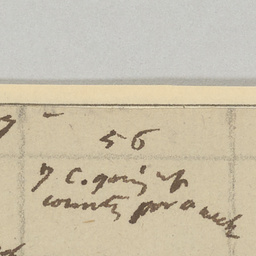 56
7 C. going up
country for a week